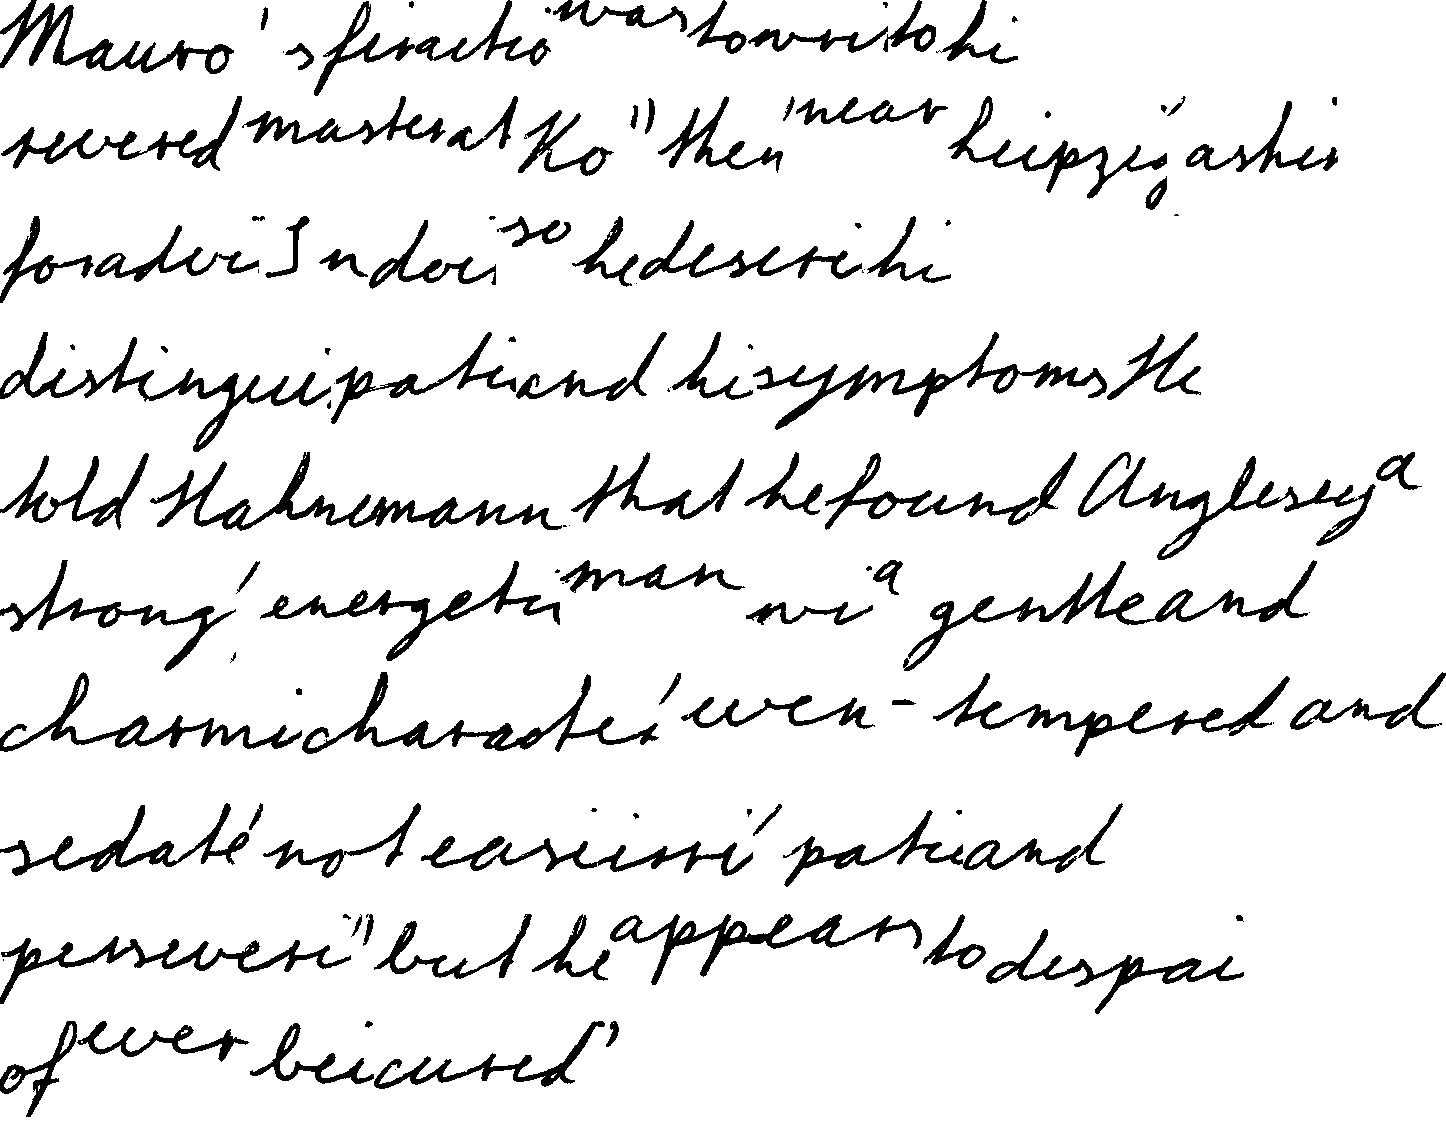 Mauro's firactio was to writo hi
revered master at Ko" then' near Leipzig' as hir
foradvi In doi so he descri hi
distingui patiand hi symptoms He
told Hahnemann that he found Anglesey a
strong' energeti man wi a gentle and
charmi character' even-tempered and
sedate' not easi irri' pati and
perseveri" but he appears to despai
of ever bei cured'